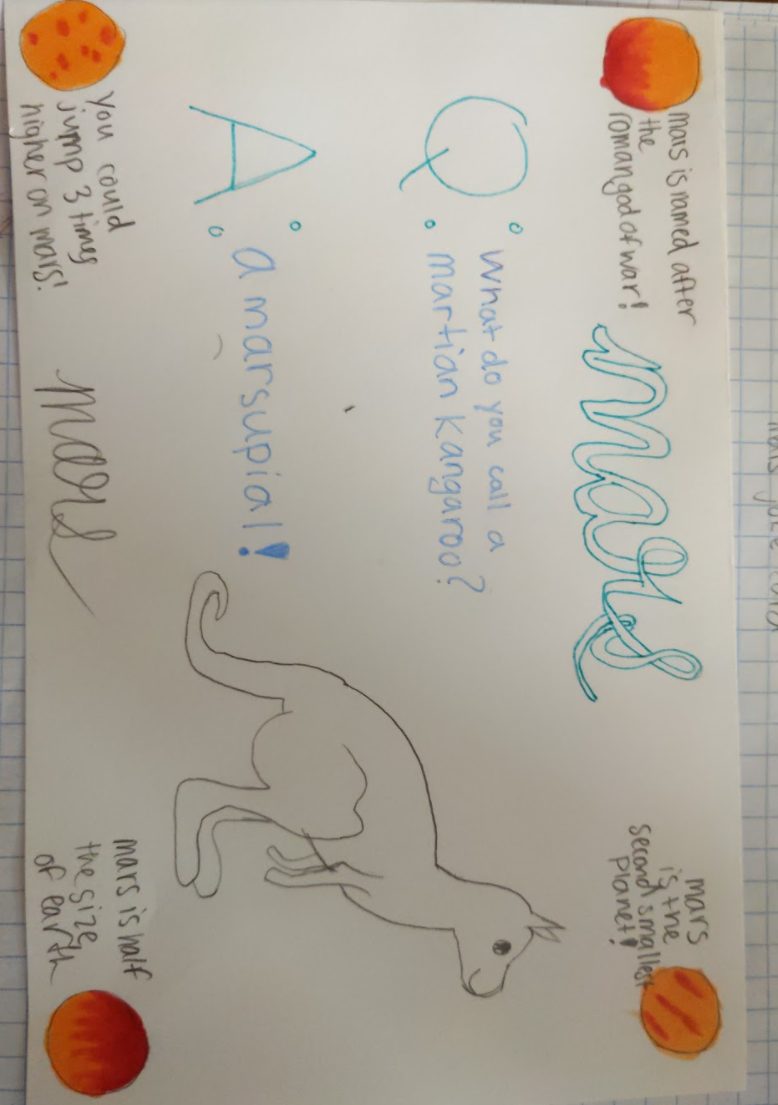 mars is named after
the
roman god of war!
mars
mars
is the
second smallest
planet!
Q: What do you call a
martian kangaroo?
A: a marsupial!
you could
jump 3 times
higher on mars!
mars
mars is half
the size
of earth